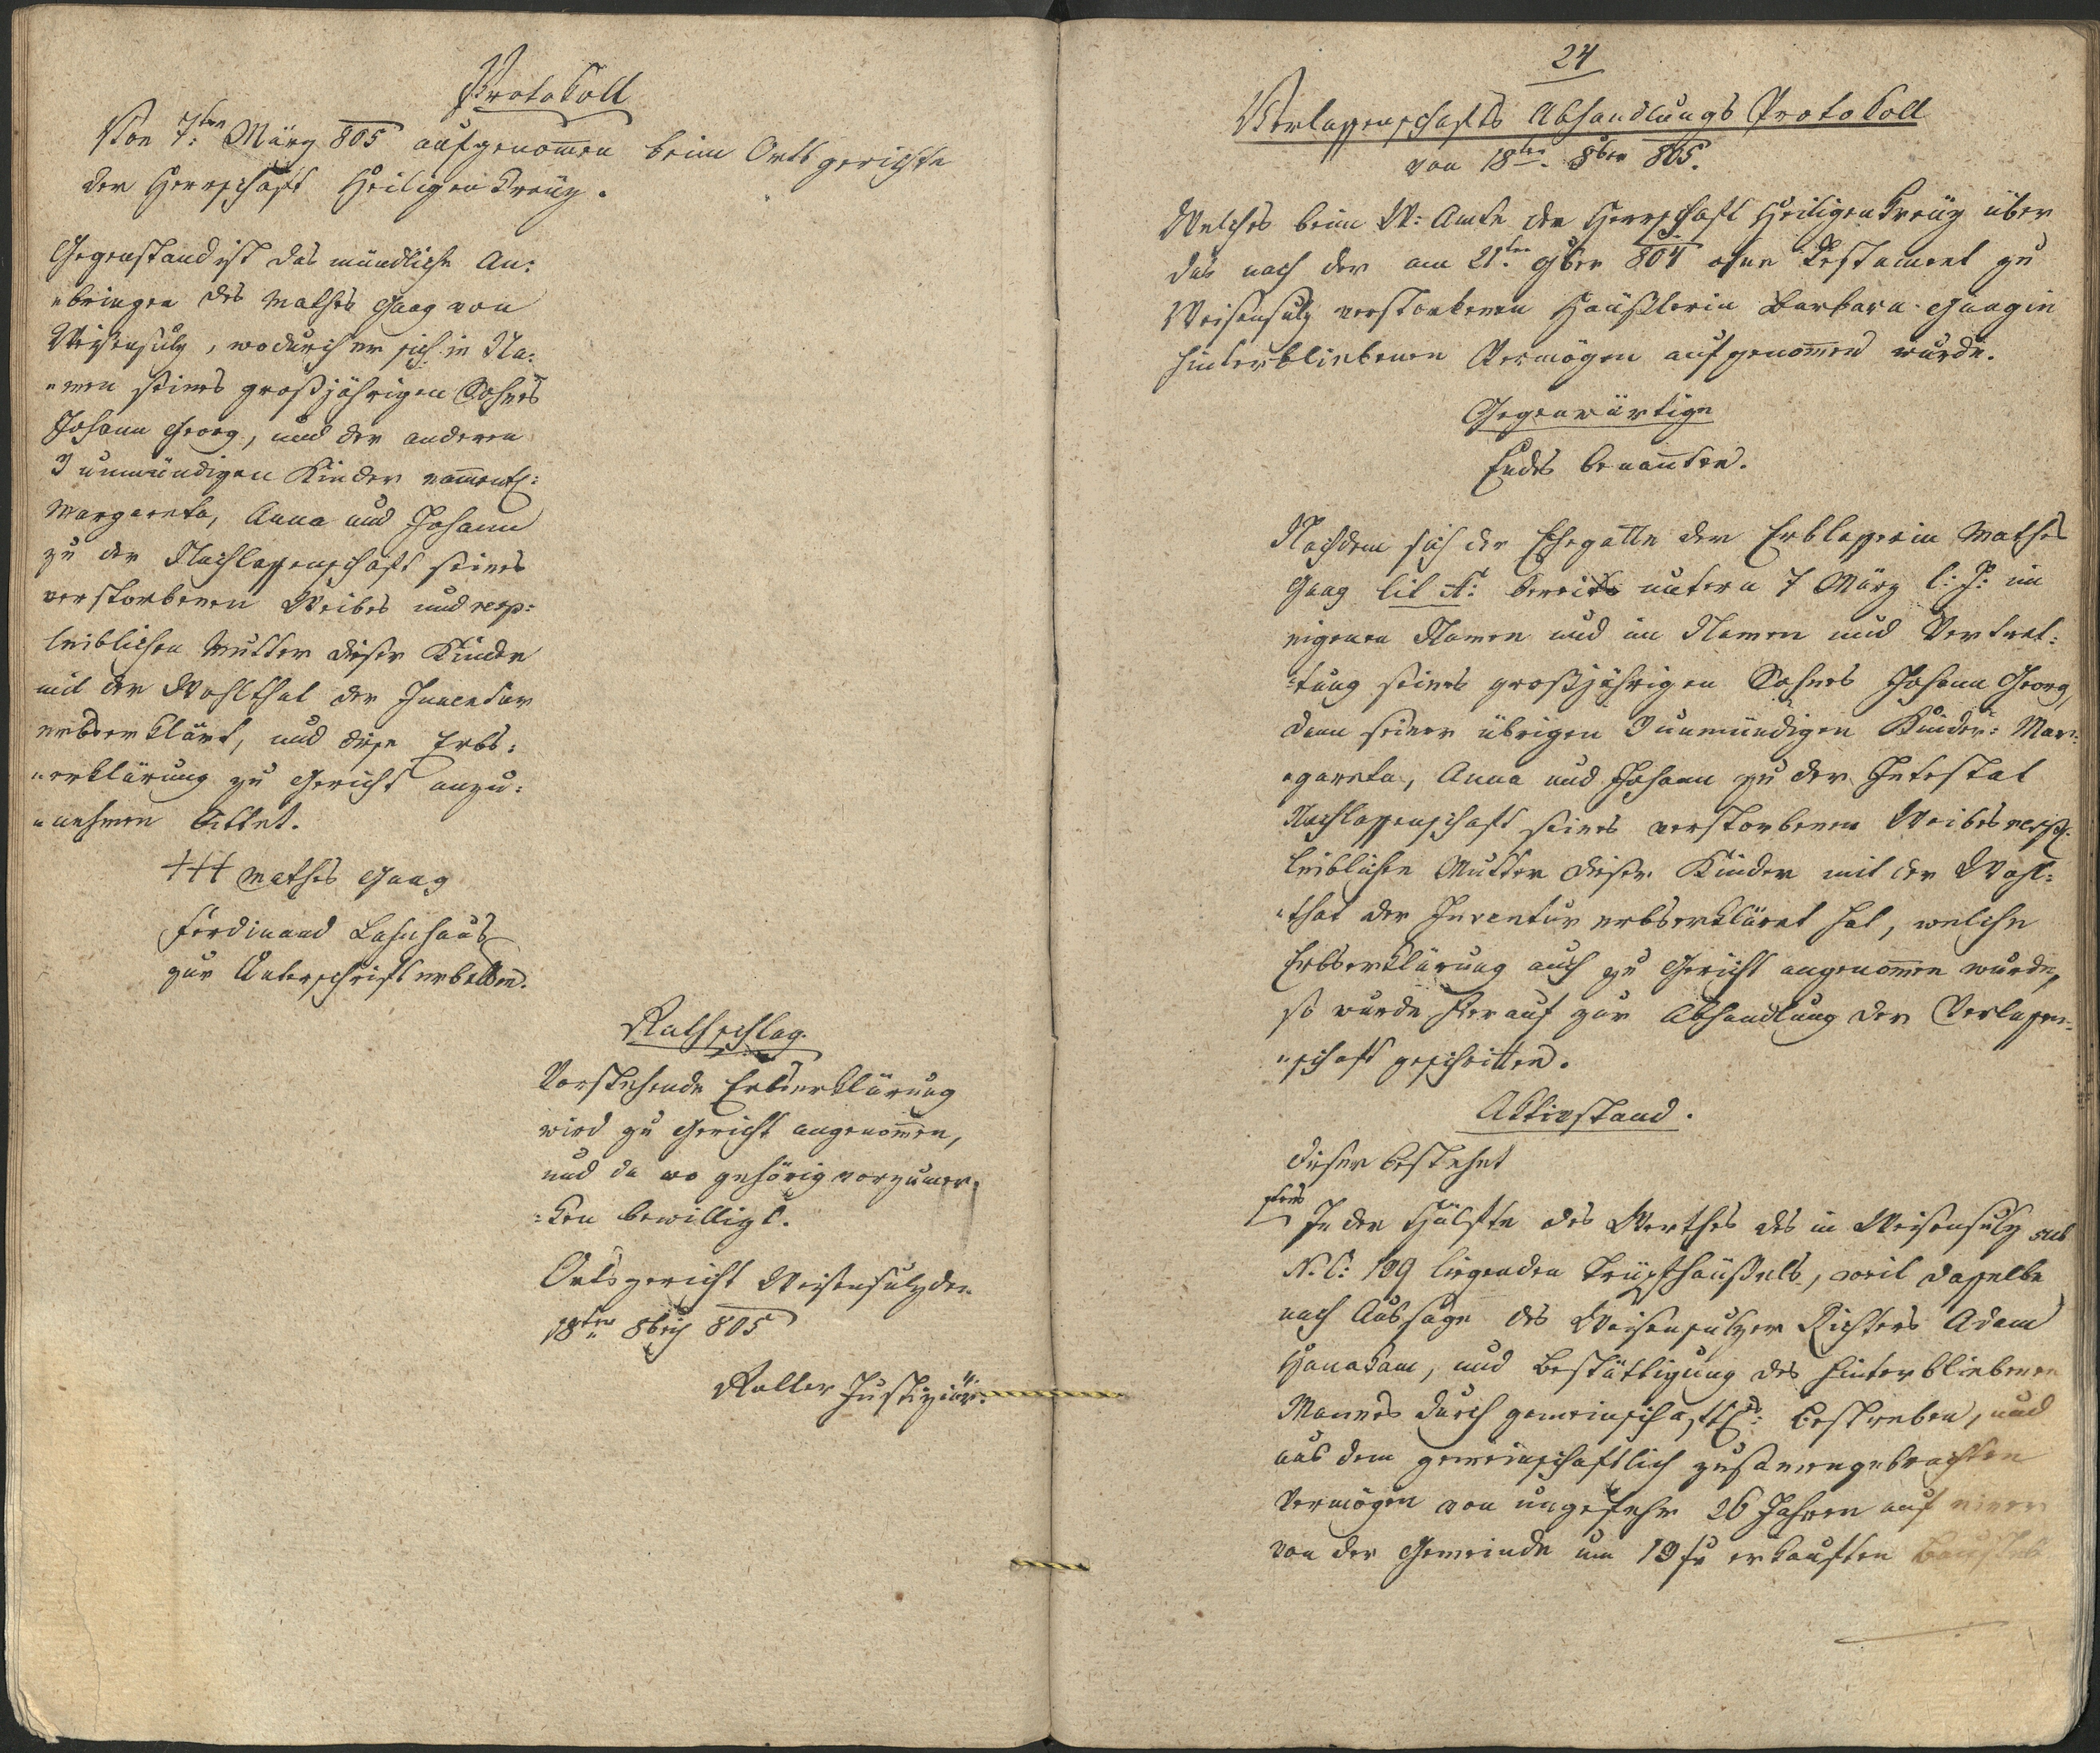 Protokoll
Von 7ten März 805 aufgenom̄en beim Ortsgerichte
der Herrschaft Heiligenkreüz.
Gegenstand ist das mündliche An:
"bringen des Mathes Gaag von
Weißensulz, wodurch er sich in Na:
"men seines großjährigen Sohnes
Johann Georg, und der anderen
3 unmündigen Kinder nam̄entl:
Margareta, Anna und Johann
zu der Nachlassenschaft seines
verstorbenen Weibes und resp:
leiblichen Mutter dieser Kinder
mit der Wohlthat der Inventur
erbserklärt, und diese Erbs:
"erklärung zu Gericht anzu:
"nehmen bittet.
+++ Mathes Gaag
Ferdinand Lahnhaus
zur Unterschrift erbetten.
Rathschlag.
Vorstehende Erbserklärung
wird zu Gericht angenom̄en,
und da wo gehörig vorzumer:
:ken bewilligt.
Ortsgericht Weisensulz den
18ten 8bris 805
Rotter Justiziär.
24
Verlassenschafts Abhandlungs Protokoll
von 18ten 8ber 805.
Welches beim W: Amte der Herrschaft Heiligenkreüz über
das nach der am 21ten 9ber 804 ohne Testament zu
Weisensulz verstorbenen Häußlerin Barbara Gaagin
hinterbliebenen Vermögen aufgenom̄en wurde.
Gegenwärtige
Endes benan̄ten.
Nachdem sich der Ehegatte der Erblasserin Mathes
Gaag lit A: bereits untern 7 März l: J: im
eigenen Namen und im Namen und Vertret:
:tung seines großjährigen Sohnes Johann Georg,
dann seiner übrigen 3 unmündigen Kinder: Mar:
"gareta, Anna und Johann zu der Intestat
Nachlassenschaft seines verstorbenen Weibes resp:
leiblichen Mutter dieser Kinder mit der Wohl:
"that der Inventur erbserkläret hat, welche
Erbserklärung auch zu Gericht angenom̄en wurde,
so wurde hierauf zur Abhandlung der Verlassen:
"schaft geschritten.
Aktivstand.
Dieser bestehet
1tens In der Hälfte des Werthes des in Weisensulz sub
N.C: 109 liegenden Trüpfhäußels, weil dasselbe
nach Aussage des Weisensulzer Richters Adam
Hanadam, und Bestättigung des hinterbliebenen
Mannes durch gemeinschaftl: Bestreben, und
aus dem gemeinschaftlich zusam̄engebrachten
Vermögen von ungefehr 26 Jahren auf einer
von der Gemeinde um 19 fr erkauften Baustelle